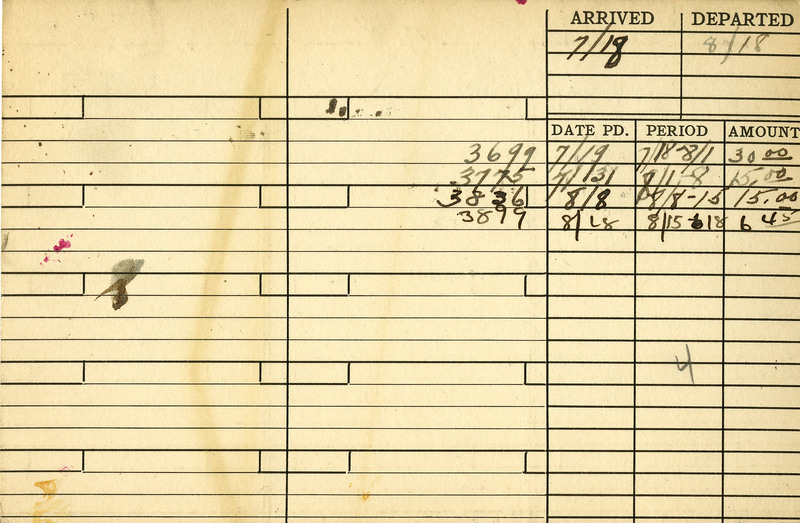 ARRIVED DEPARTED
7/18 8/18
DATE PD. PERIOD AMOUNT
3699 7/19 7/18-8/1 30 00
3775 7/31 8/1-8 15.00
3836 8/8 8/8-15 15.00
3899 8/18 8/15 to 18 6 45
4